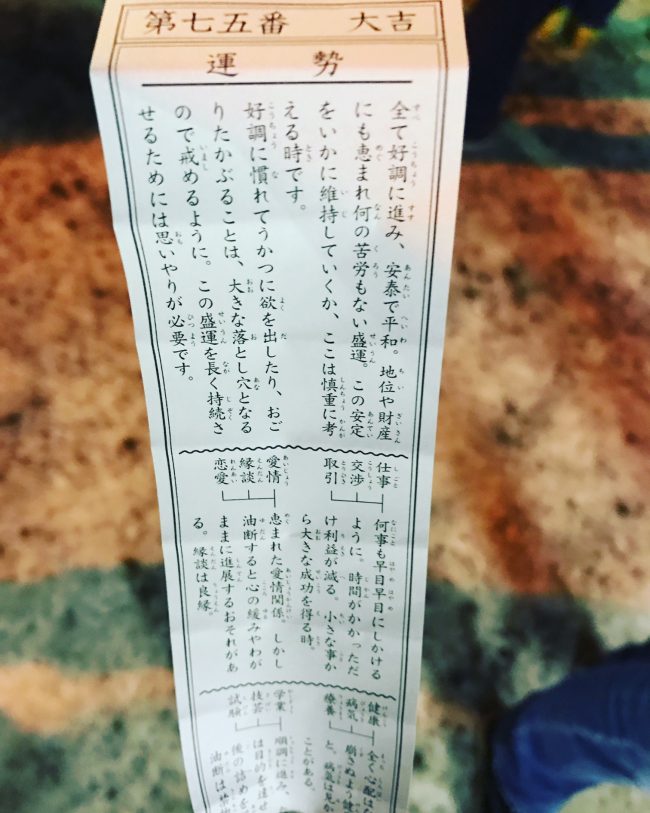 第七五番　大吉
運勢
全て好調に進み、安泰で平和。地位や財産
にも恵まれ何の苦労もない盛運。この安定
をいかに維持していくか、ここは慎重に考
える時です。
好調に慣れてうかつに欲を出したり、おご
りたかぶることは、大きな落とし穴となる
ので戒めるように。この盛運を長く持続さ
せるためには思いやりが必要です。
仕事
交渉
取引
何事も早目早目にしかける
ように。時間がかかっただ
け利益が減る。小さな事か
ら大きな成功を得る時。
愛情
縁談
恋愛
恵まれた愛情関係。しかし
油断すると心の緩みやわが
ままに進展するおそれがあ
る。縁談は良縁。
健康
病気
療養
全く心配はな
崩さぬよう健
と。病気は見か
ことがある。
学業
技芸
試験
順調に進み、
は目的を達せ
後の詰めを
油断は禁物